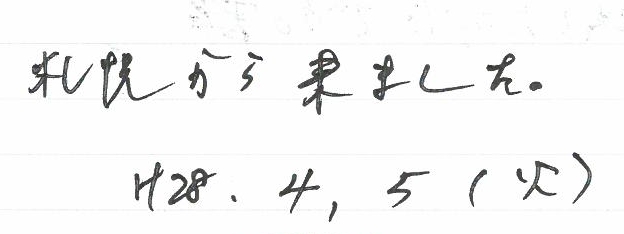 札幌から来ました。
H28.4,5(火)